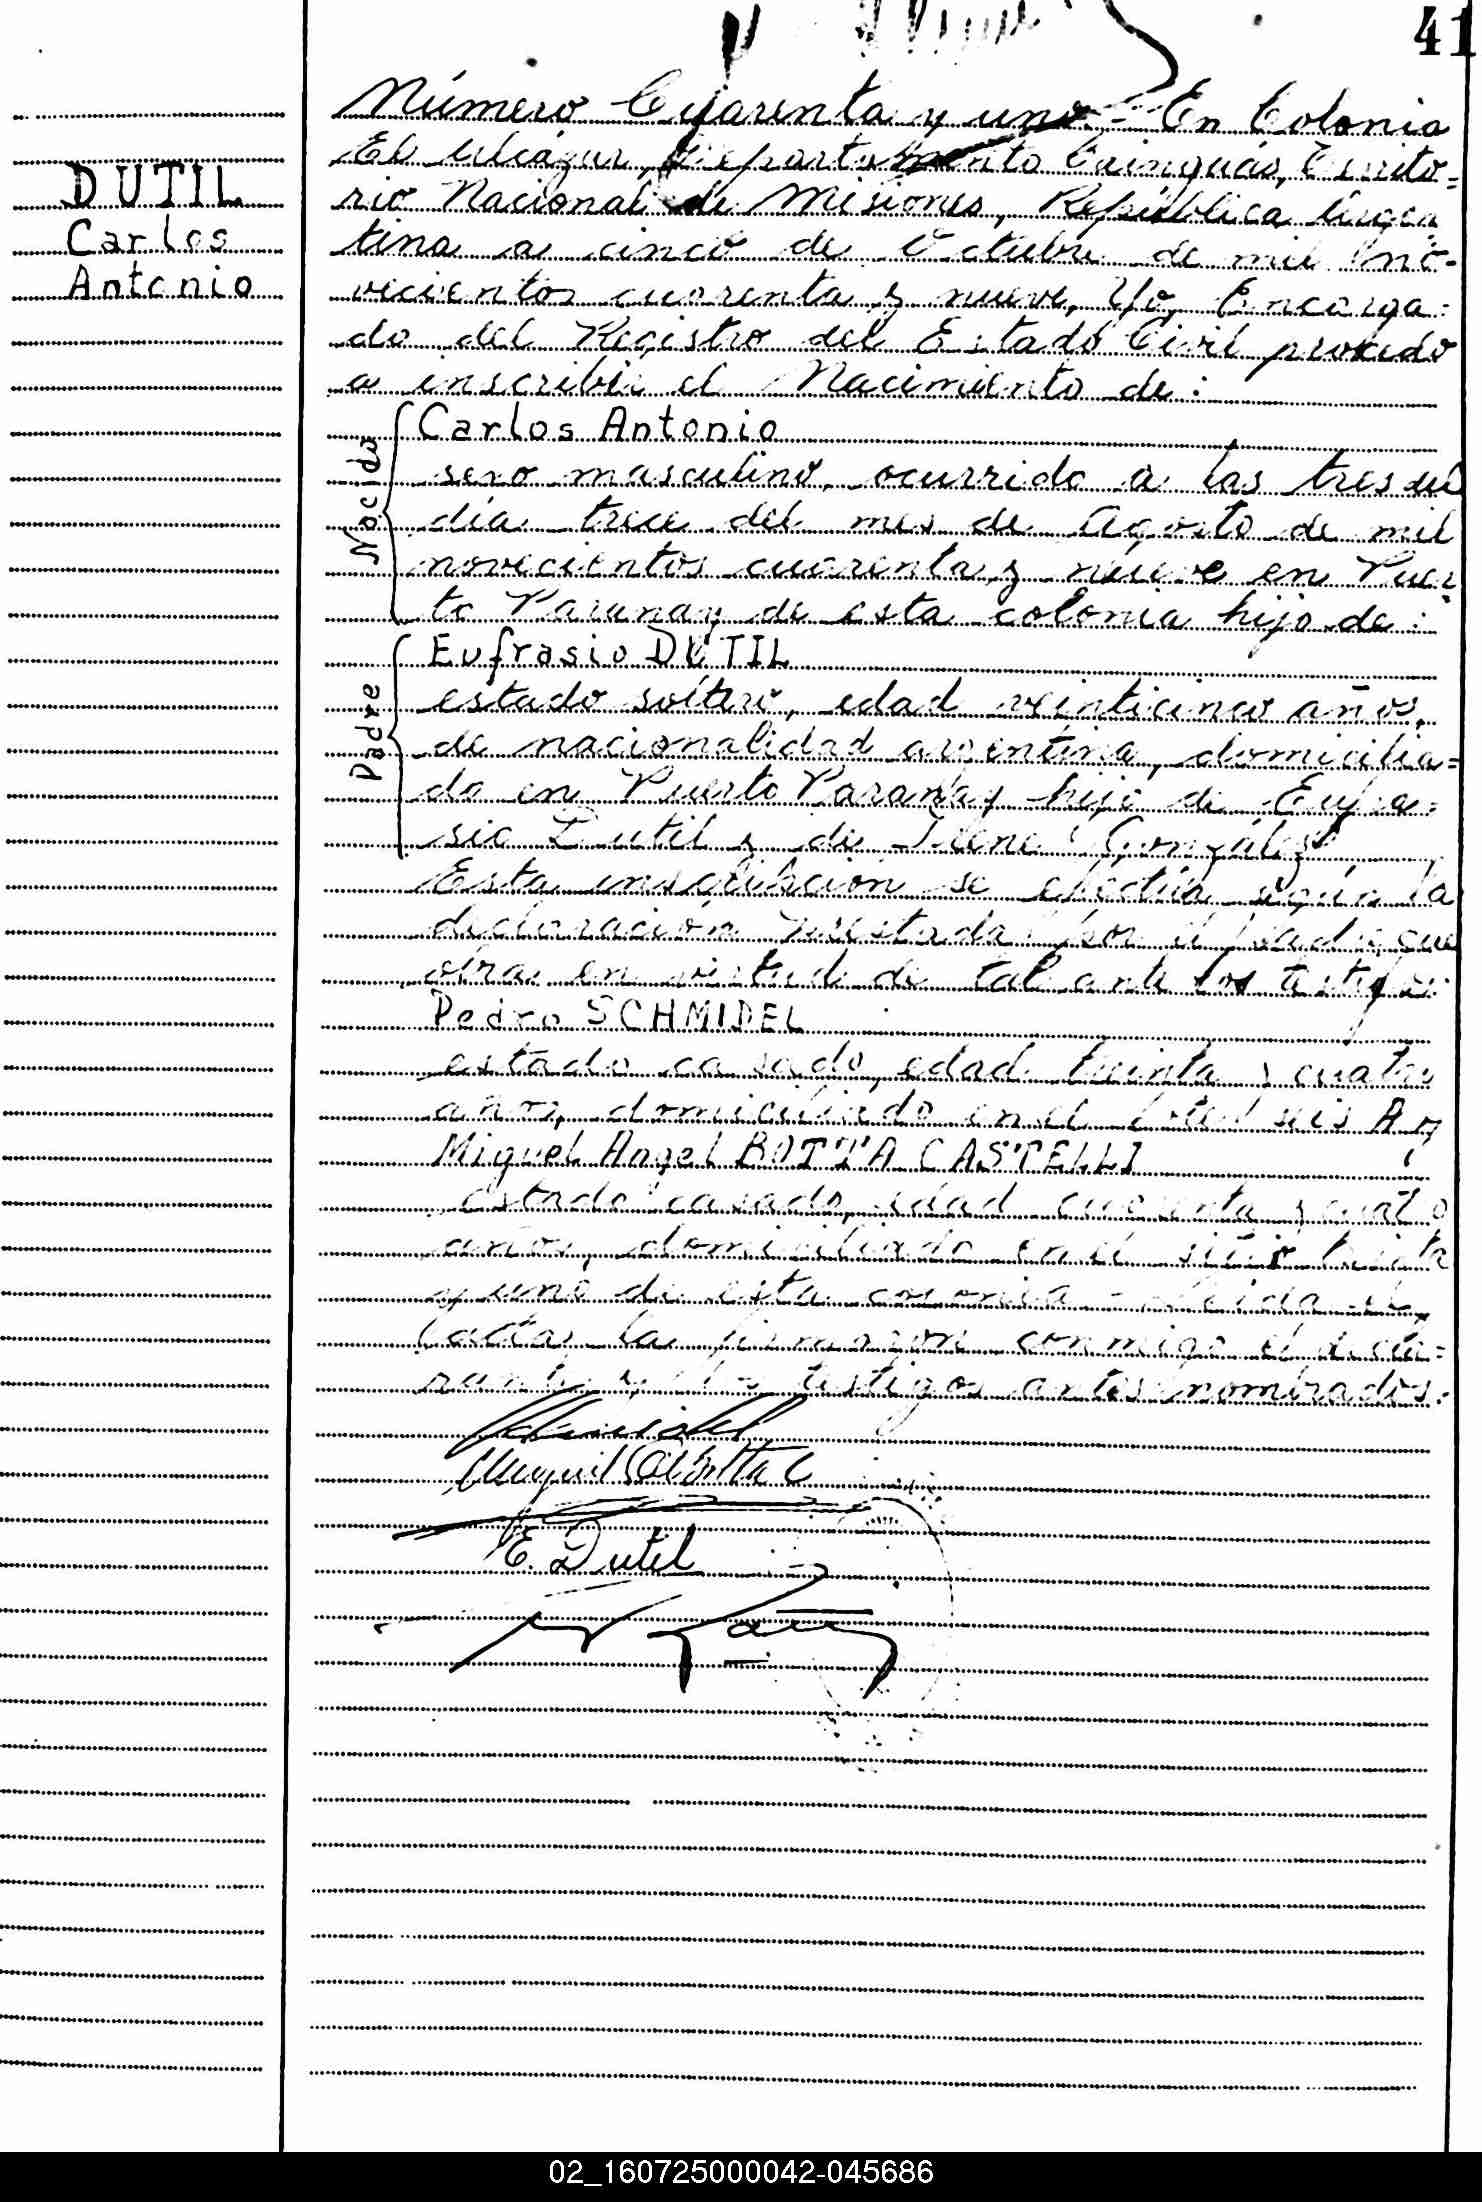 41
DUTIL
Carlos
Antonio
Número Cuarenta y uno.- En Colonia
El Alcázar, Departamento Cainguás, Territo=
rio Nacional de Misiones, República Argen
tina a cinco de Octubre de mil no-
vecientos cuarenta y nueve, Yo, Encarga=
do del Registro del Estado Civil procedo
a inscribir el Nacimiento de:
Nacido
Carlos Antonio
sexo masculino, ocurrido a las tres del
día trece del mes de Agosto de mil
novecientos cuarenta y nueve en Puer
to Paranay de esta colonia hijo de:
Padre
Eufrasio DUTIL
estado soltero, edad veinticinco años,
de nacionalidad argentina, domicilia=
do en Puerto Paranay hijo de Eufra=
sio Dutil y de Irene González
Esta inscripción se efectúa según la
declaración prestada por el padre que
obra en virtud de tal ante los testigos
Pedro SCHMIDEL
estado casado, edad treinta y cuatro
años, domiciliado en el lote seis A y
Miguel Angel BOTTA CASTELLI
estado casado, edad cuarenta y cuatro
años, domiciliado en el treinta
y uno de esta colonia.- Leída el
acta, la firmaron conmigo el decla=
rante y los testigos antes nombrados.
Schmidel
Miguel A Botta C
E. Dutil
02_160725000042-045686